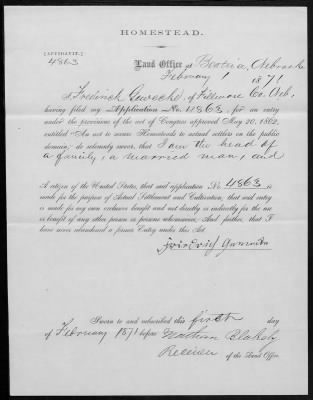 HOMESTEAD.
[AFFIDAVIT.]
4863
Land Office at Beatrice, Nebraska
February 1 1871
I Frederick of Fillmore Co Neb,
having filed my Application No. 4863, for an entry
under the provisions of the act of Congress approved May 20, 1862,
entitled "An act to secure Homesteads to actual settlers on the public
domain," do solemnly swear, that I am the head of
a family, a married man, and
A citizen of the United States, that said application No. 4863 is
made for the purpose of Actual Settlement and Cultivation; that said entry
is made for my own exclusive benefit and not directly or indirectly for the use
or benefit of any other person or persons whomsoever. And further, that I
have never abandoned a former Entry under this Act
Sworn to and subscribed this first day
of February 1871 before Nathan Blakely
Receiver of the Land Office.